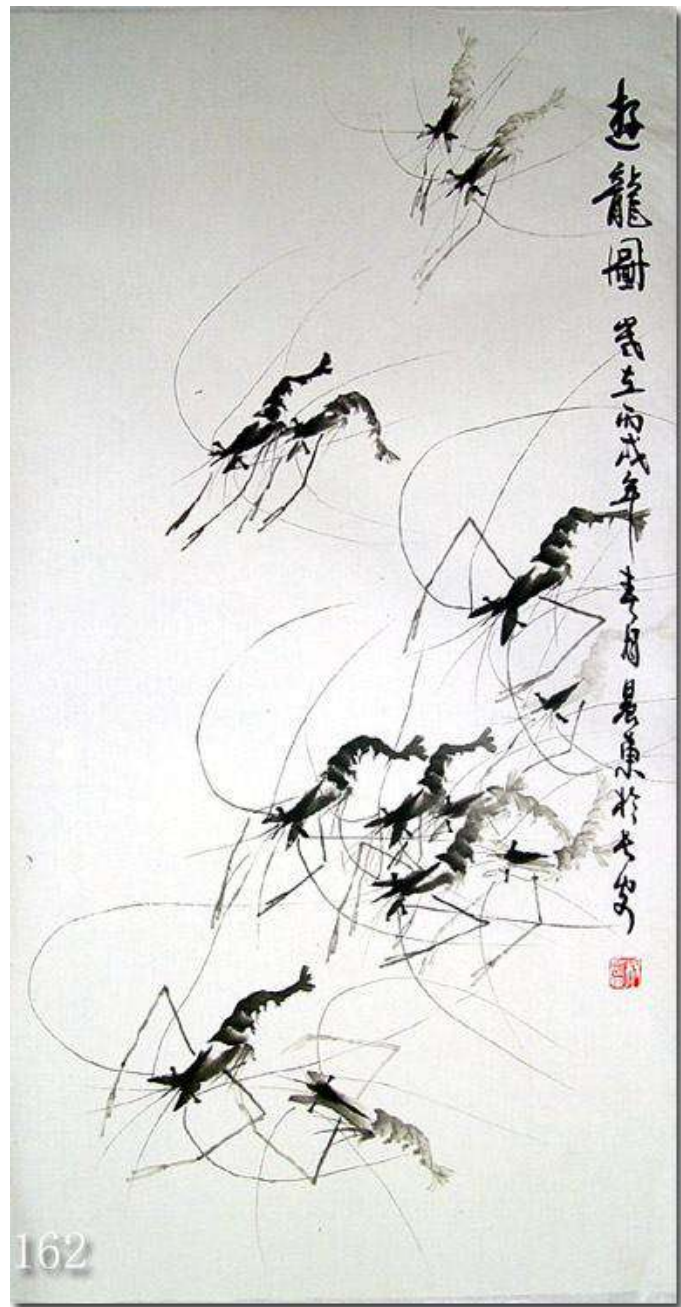 游龍圖
歲在丙戌年春月晨東於长安
162